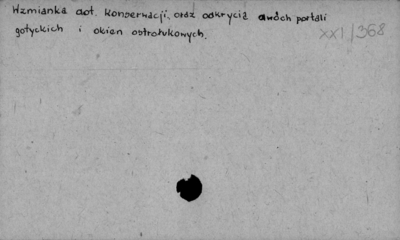 Wzmianka dot. konserwacji, oraz odkrycia dwóch portali
gotyckich i okien ostrołukowych.
XXI/368